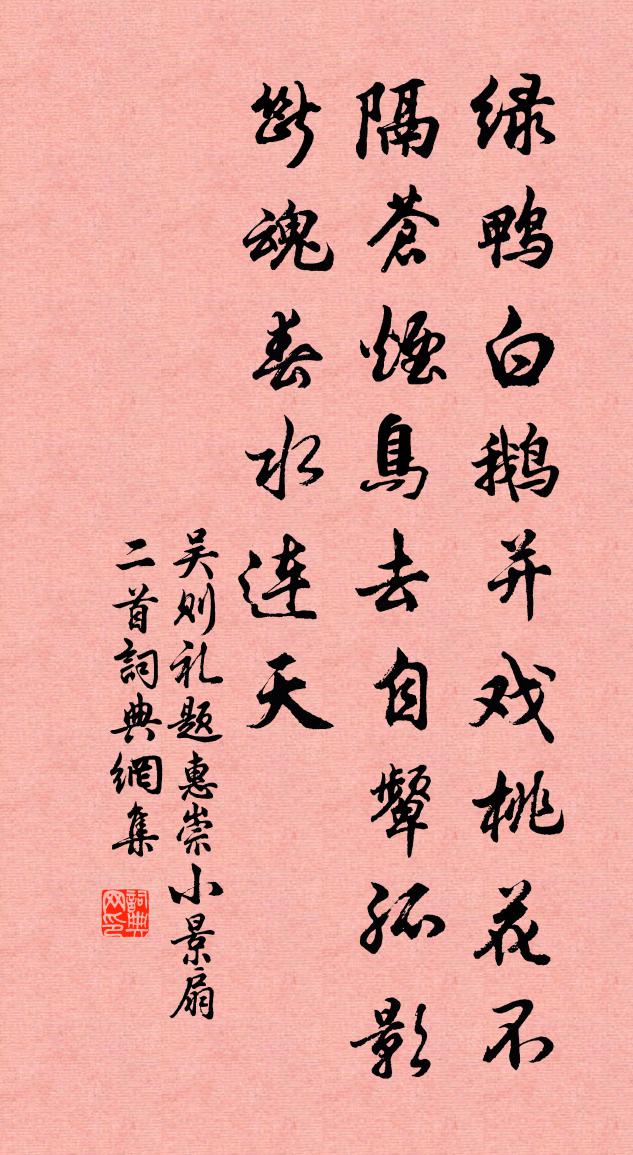 绿鸭白鹅并戏桃花不
隔苍烟鸟去自颦孤影
断魂春水连天
吴则礼题惠崇小景扇
二首词典網集
詞典
网印